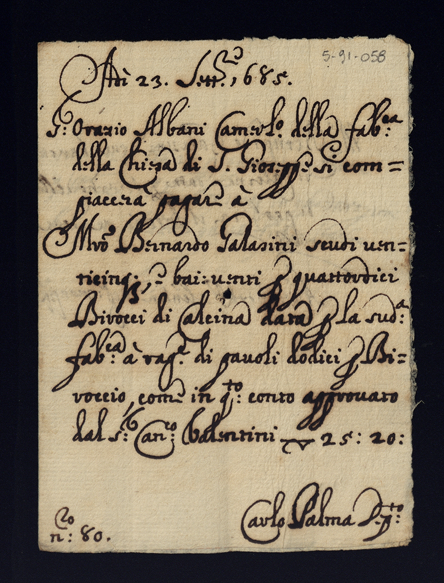 5-91-058
Adì 23. Sett.ro 1685.
S.r Orazio Albani Camerl.o della fab.ca
della Chiesa di S. Gioseppe Si com=
piacerà pagare à
Mro Bernardo Palasini scudi ven=
ticinq;, e bai: venti p quattordici
Birocci di Calcina data p la sud.a
fab.ca à rag.e di pavoli dodici p Bi=
roccio, come in q.to conto approvato
dal S.r Can.co Valentini 25: 20:
Carlo Palma D.to
n.ro 80.